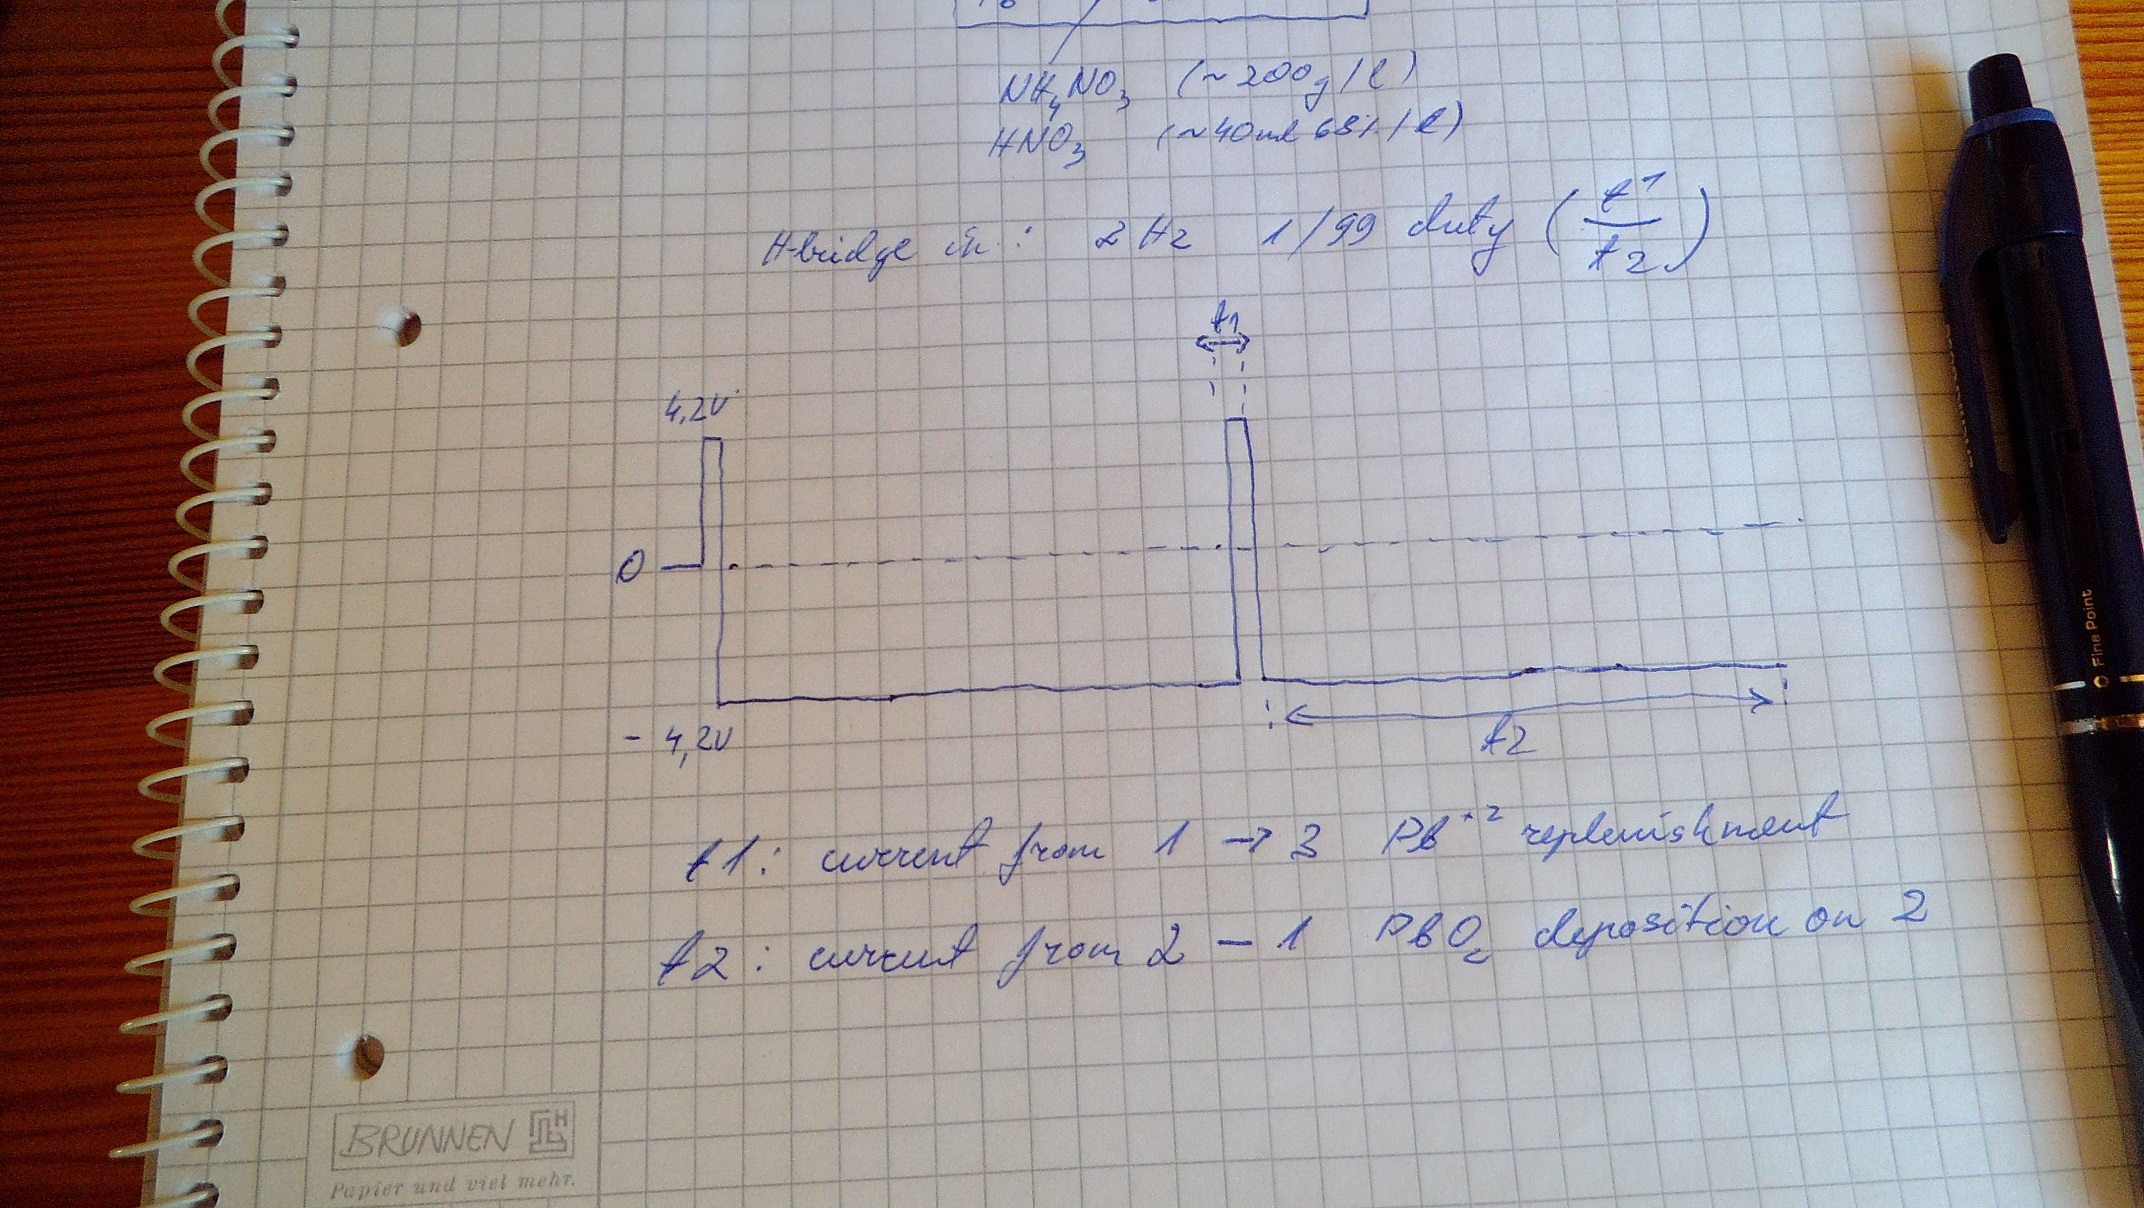 NH4NO3 (~200g/l)
HNO3 (~40ml 68%/l)
H-bridge in: 2Hz 1/99 duty (t1/t2)
t1
4,2V
0
- 4,2V
t2
t1: current from 1 → 3 Pb+2 replenishment
t2: current from 2 – 1 PbO2 deposition on 2
BRUNNEN
Papier und viel mehr.
Fine Point